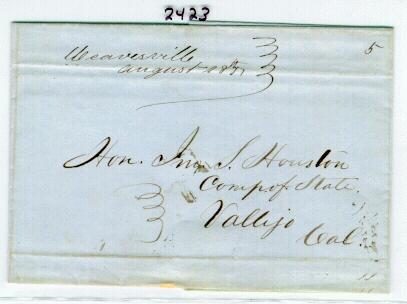 2423
Weaverville
August 1851
5
Hon. Jno. S. Houston
Comp of State.
Vallijo
Cal.